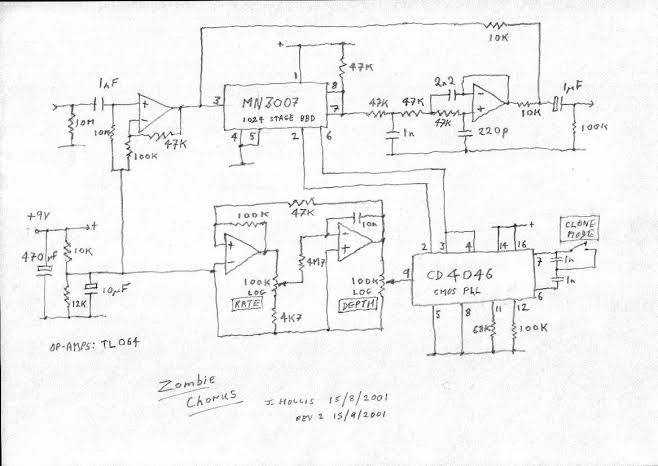 10K
+
1
47K
1nF
3
MN3007
8
7
1024 STAGE BBD
+
-
10M
10M
47K
100K
4 5 2 6
47K
47K
2n2
47K
1n
220p
+
-
10K
1µF
100K
+9V
+
470µF
10K
10µF
12K
47K
100K
10n
+
-
4K7
-
+
100K
LOG
RATE
4K7
100K
LOG
DEPTH
9
2 3 4 14 16
+
CD4046
CMOS PLL
7
6
5 8 11 12
1n
1n
CLONE
MODE
68K
100K
OP-AMPS: TL064
Zombie
Chorus
J. HOLLIS 15/8/2001
REV. 2 15/9/2001